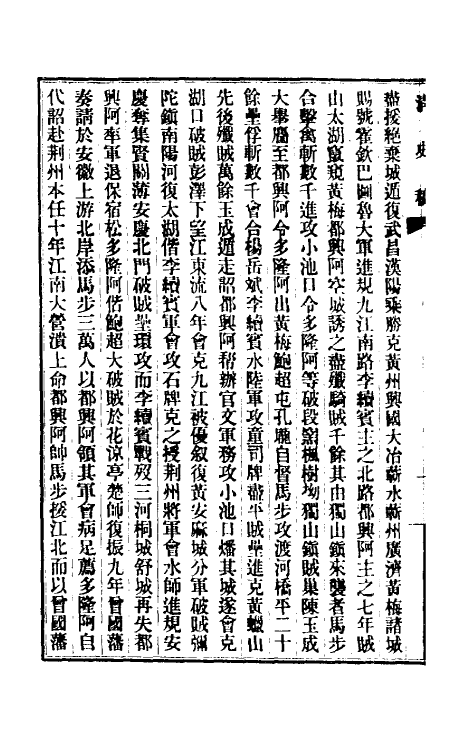 清史稿
盡援絕棄城遁復武昌漢陽乘勝克黃州興國大冶蘄水蘄州廣濟黃梅諸城
賜號霍欽巴圖魯大軍進規九江南路李續賓主之北路都興阿主之七年賊
山太湖竄窺黃梅都興阿空城誘之盡殲騎賊千餘其由獨山鎮來襲者馬步
合擊禽斬數千進攻小池口令多隆阿等破段窰楓樹坳獨山鎮賊巢陳玉成
大舉屬至都興阿令多隆阿出黃梅鮑超屯孔壠自督馬步攻渡河橋平二十
餘壘俘斬數千會合楊岳斌李續賓水陸軍攻童司牌盡平賊壘進克黃蠟山
先後殲賊萬餘玉成遁走詔都興阿幫辦官文軍務攻小池口燔其城遂會克
湖口破賊彭澤下望江東流八年會克九江被優敘復黃安麻城分軍破賊彌
陀鎮南陽河復太湖偕李續賓軍會攻石牌克之授荊州將軍會水師進規安
慶奪集賢關薄安慶北門破賊壘環攻而李續賓戰歿三河桐城舒城再失都
興阿率軍退保宿松多隆阿偕鮑超大破賊於花涼亭楚師復振九年曾國藩
奏請於安徽上游北岸添馬步三萬人以都興阿領其軍會病足薦多隆阿自
代詔赴荊州本任十年江南大營潰上命都興阿帥馬步援江北而以曾國藩